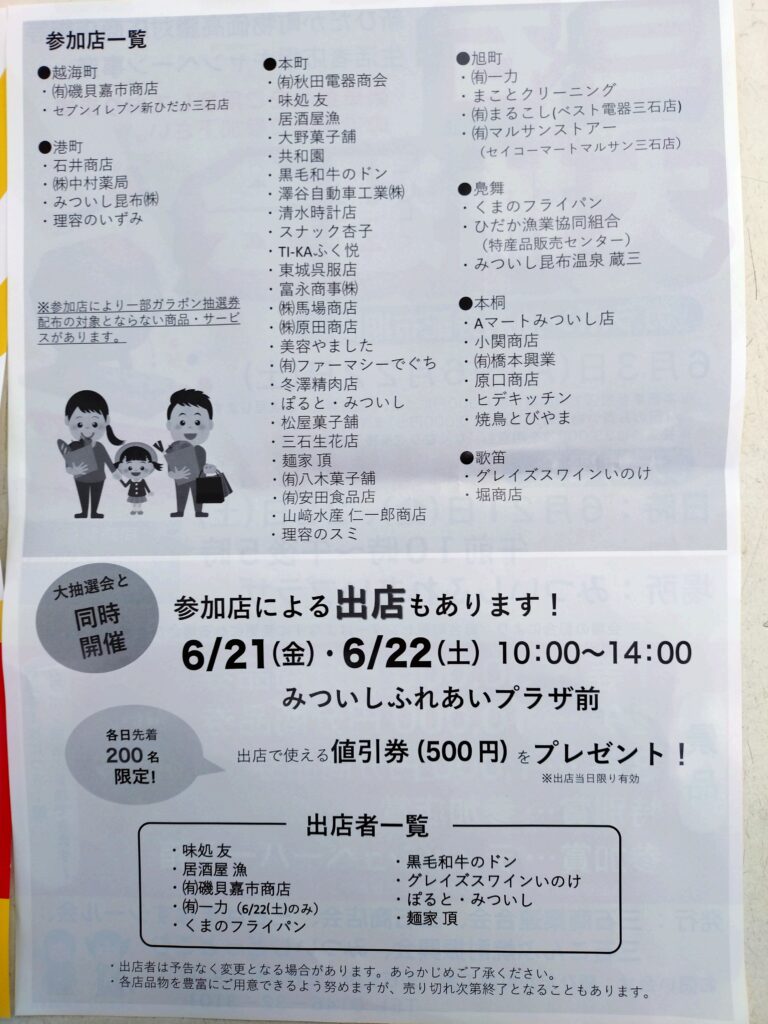 参加店一覧
●越海町
・㈲磯貝嘉市商店
・セブンイレブン新ひだか三石店
●港町
・石井商店
・㈱中村薬局
・みついし昆布㈱
・理容のいずみ
※参加店により一部ガラポン抽選券
配布の対象とならない商品・サービ
スがあります。
●本町
・㈲秋田電器商会
・味処 友
・居酒屋漁
・大野菓子舗
・共和園
・黒毛和牛のドン
・澤谷自動車工業㈱
・清水時計店
・スナック杏子
・TI-KAふく悦
・東城呉服店
・富永商事㈱
・㈱馬場商店
・㈱原田商店
・美容やました
・㈲ファーマシーでぐち
・冬澤精肉店
・ぽると・みついし
・松屋菓子舗
・三石生花店
・麺家 頂
・㈲八木菓子舗
・㈲安田食品店
・山﨑水産 仁一郎商店
・理容のスミ
●旭町
・㈲一力
・まことクリーニング
・㈲まるこし(ベスト電器三石店)
・㈲マルサンストアー
（セイコーマートマルサン三石店）
●鳧舞
・くまのフライパン
・ひだか漁業協同組合
（特産品販売センター）
・みついし昆布温泉 蔵三
●本桐
・Aマートみついし店
・小関商店
・㈲橋本興業
・原口商店
・ヒデキッチン
・焼鳥とびやま
●歌笛
・グレイズスワインいのけ
・堀商店
大抽選会と
同時
開催
参加店による出店もあります！
6/21(金)・6/22(土) 10:00～14:00
みついしふれあいプラザ前
各日先着
200名
限定!
出店で使える値引券(500円)をプレゼント！
※出店当日限り有効
出店者一覧
・味処 友
・居酒屋 漁
・㈲磯貝嘉市商店
・㈲一力（6/22(土)のみ）
・くまのフライパン
・黒毛和牛のドン
・グレイズスワインいのけ
・ぽると・みついし
・麺家 頂
・出店者は予告なく変更となる場合があります。あらかじめご了承ください。
・各店品物を豊富にご用意できるよう努めますが、売り切れ次第終了となることもあります。